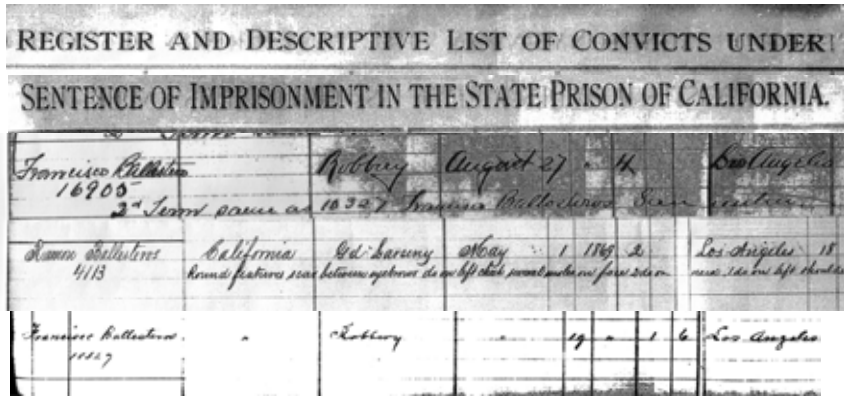 REGISTER AND DESCRIPTIVE LIST OF CONVICTS UNDER
SENTENCE OF IMPRISONMENT IN THE STATE PRISON OF CALIFORNIA.
Francisco Ballesteros Robbery August 27 " 4 Los Angeles
16905
2d Term same as 10327 Francisco Ballesteros
Ramon Ballesteros California Gd Larceny May 1 1869 2 Los Angeles 18
4113 Round features scar between eyebrows do on left cheek moles on face 2 do on neck 1 do on left shoulder
Francisco Ballesteros " Robbery " 19 " 1 6 Los Angeles